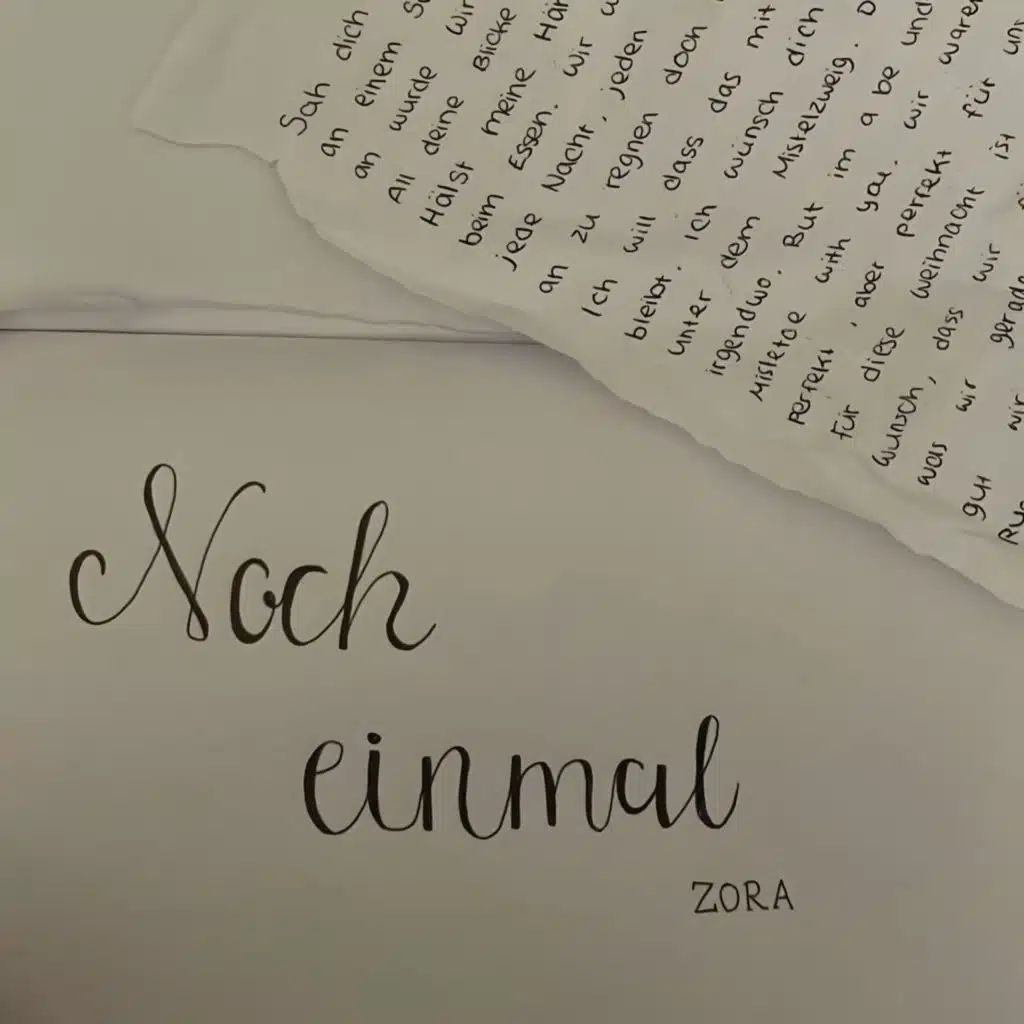 Sah dich
an einem
an wurde wir
All deine Blicke
Hälst meine
beim Essen. wir
jede Nacht, jeden
an zu regnen doch
Ich will dass das mit
bleibt. Ich wünsch dich
unter dem Mistelzweig.
irgendwo. But im a be und
Misletoe with you. wir waren
perfekt, aber perfekt für uns
für diese weihnacht ist
wunsch, dass wir
was wir gerade
gut wir
Noch
einmal
ZORA